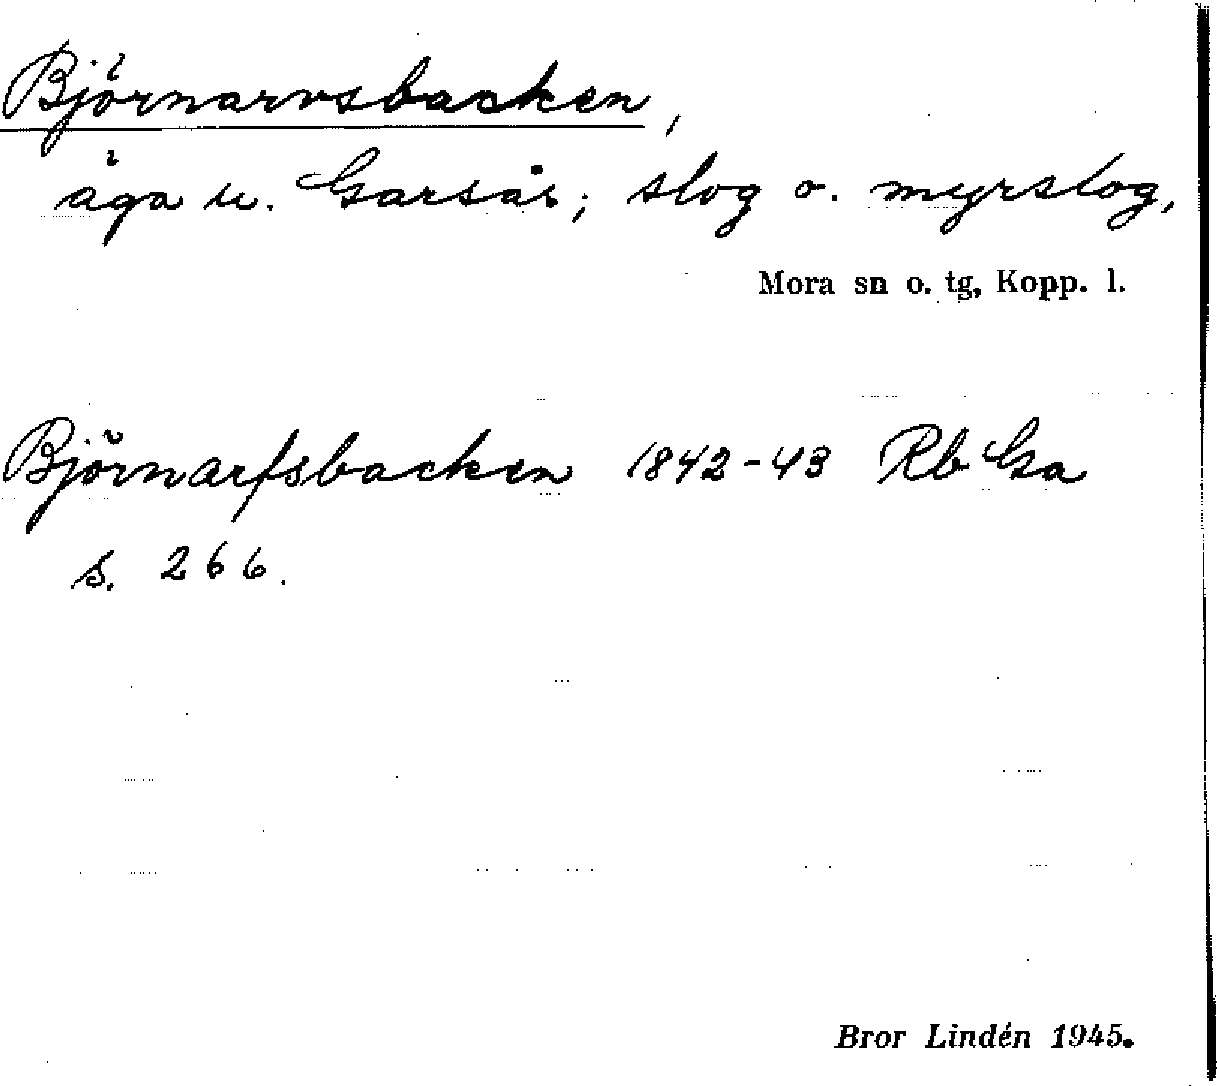 Björnarvsbacken,
äga u. Garsås; slog o. myrslog,
Mora sn o. tg, Kopp. l.
Björnarfsbacken 1842-43 Rb Ga
s. 266.
Bror Lindén 1945.